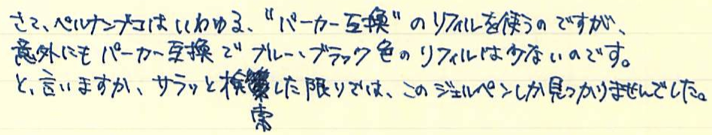 さて、ペルナンブコはいわゆる、“パーカー互換”のリフィルを使うのですが、
意外にもパーカー互換でブルー・ブラック色のリフィルは少ないのです。
と、言いますか、サラッと検索した限りでは、このジェルペンしか見つかりませんでした。